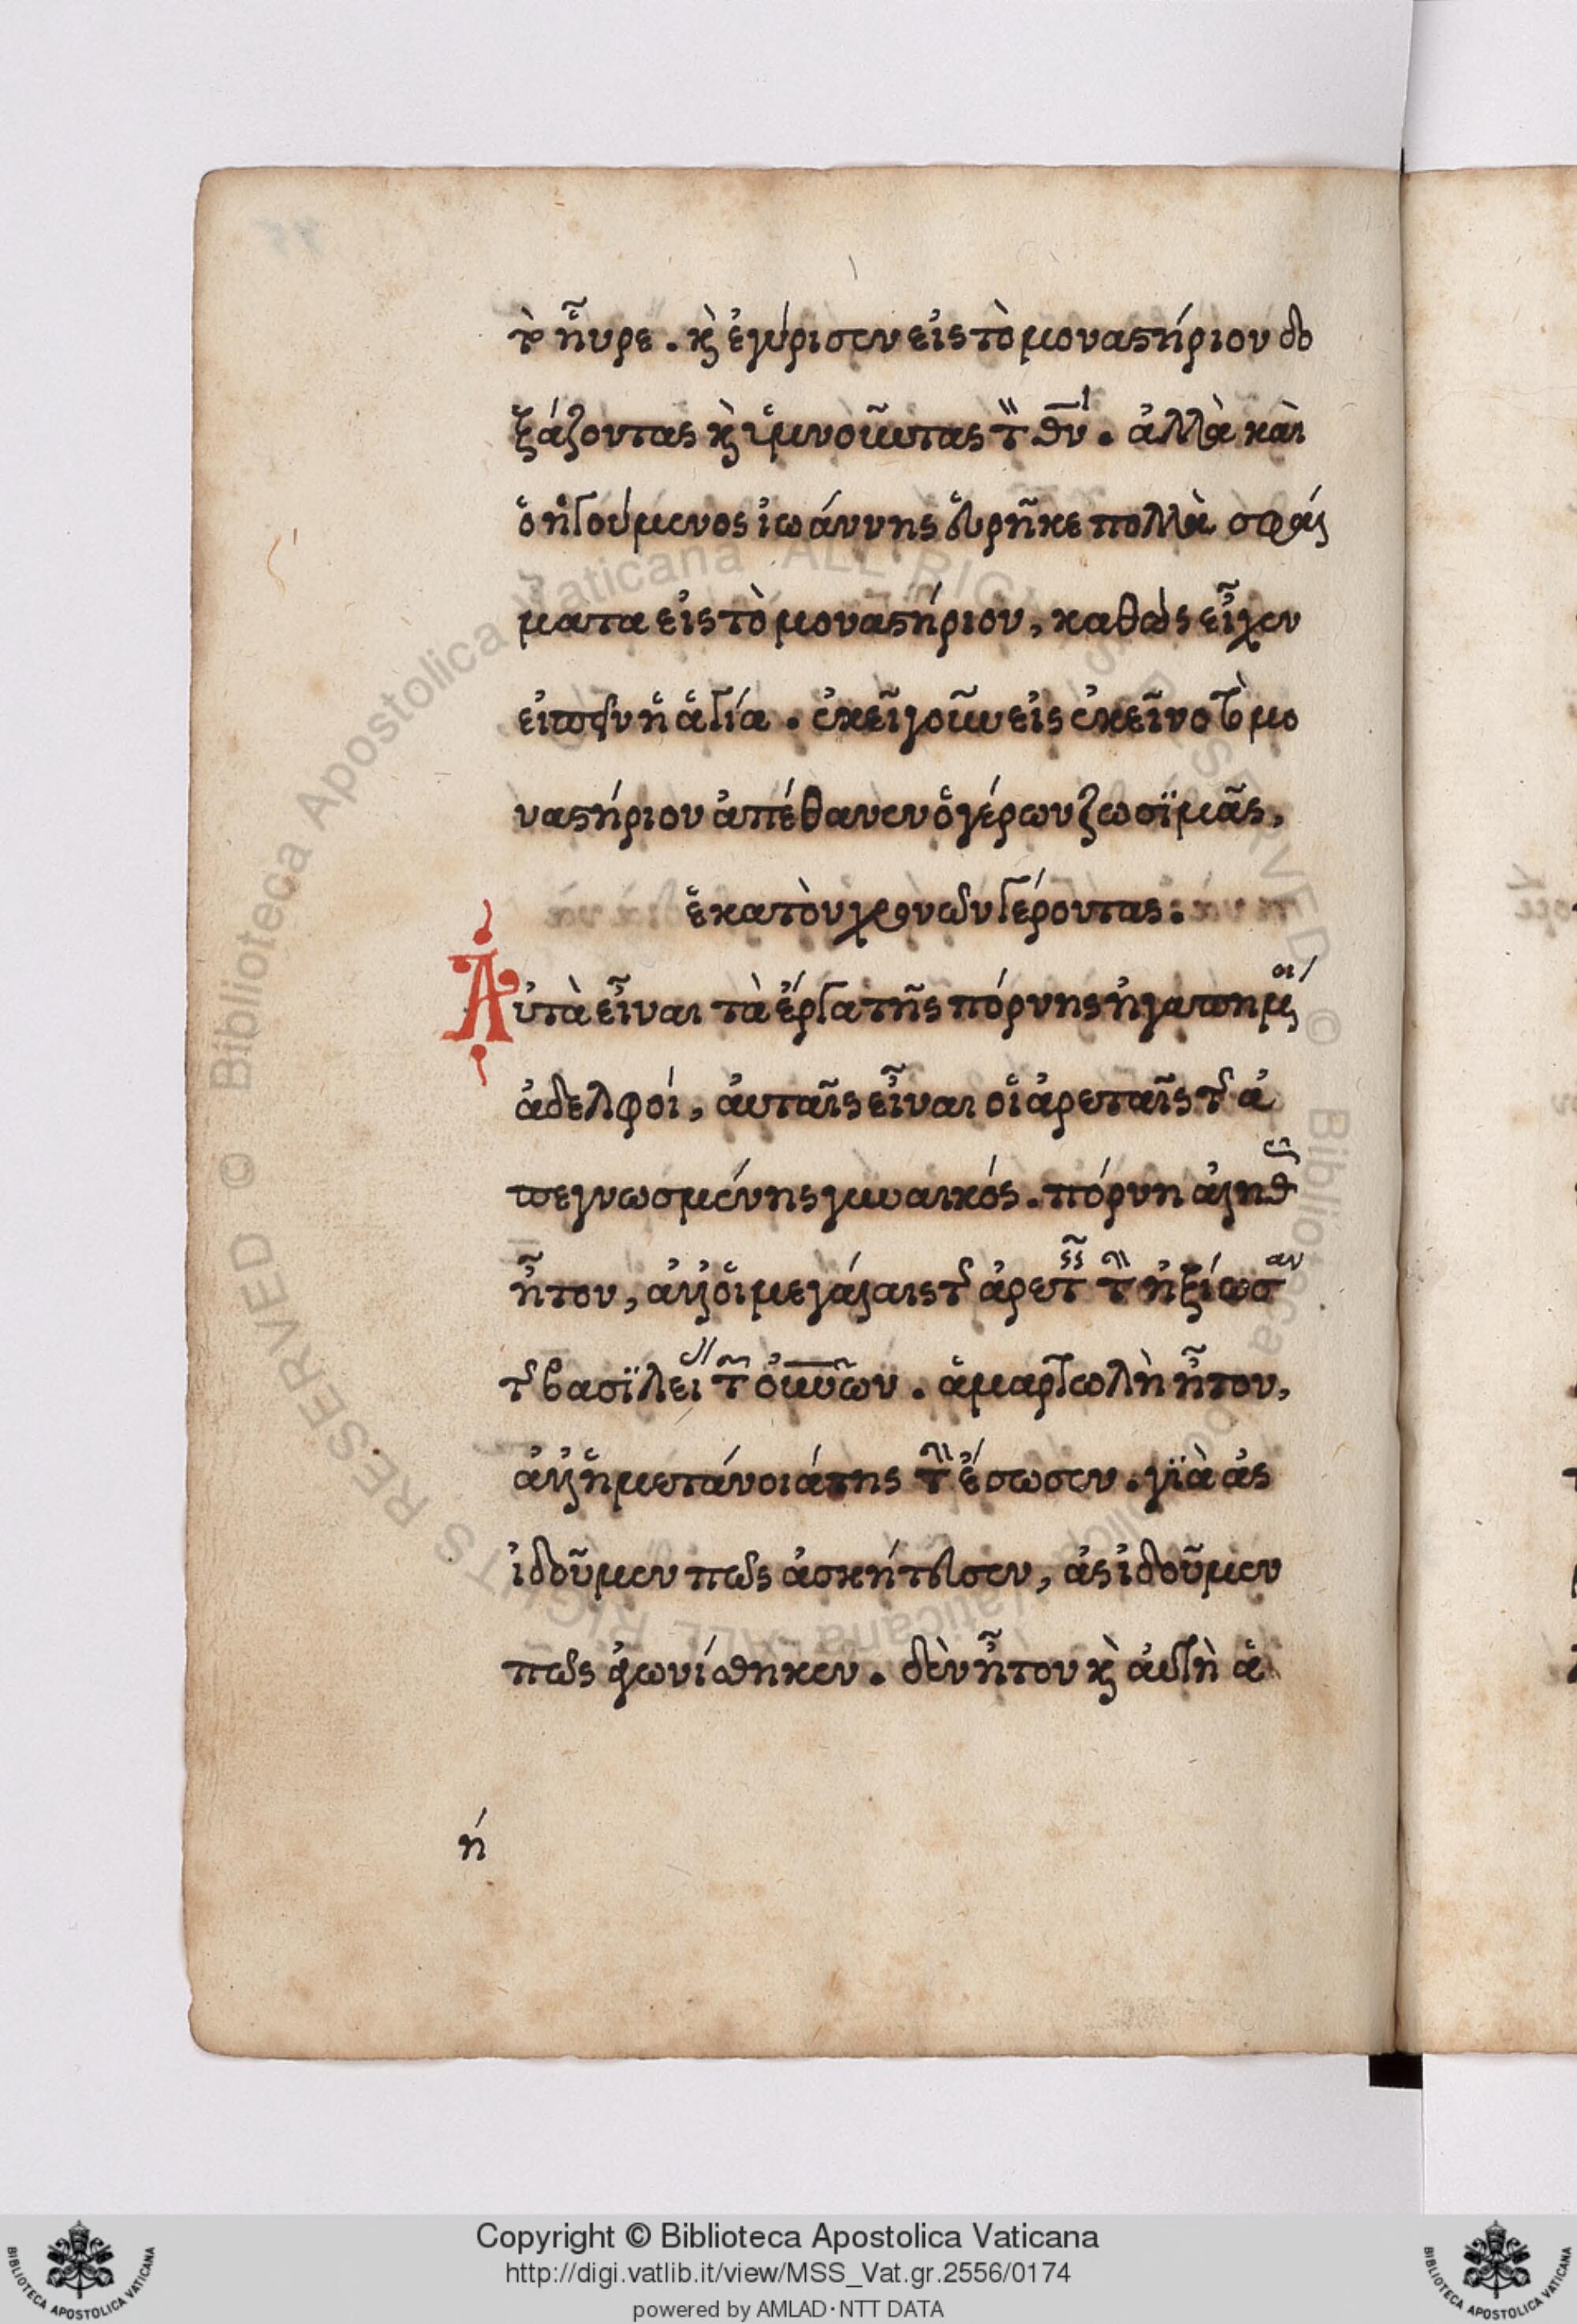 τὸ ηὗρε. κὶ ἐγύρισεν εἰς τὸ μοναστήριον δο
ξάζοντας κὶ ὑμνοῦντας τ θν. ἀλλὰ καὶ
ὁ ἡγούμενος ἰωάννης εὑρῆκε πολλὰ σφάλ
ματα εἰς τὸ μοναστήριον, καθὼς εἶχεν
εἰποῦν ἡ ἁγία. ἐκεῖ λοῦν εἰς ἐκεῖνο τὸ μο
ναστήριον ἀπέθανεν ὁ γέρων ζωσϊμᾶς,
ἑκατὸν χρονῶν γέροντας.
Αὐτὰ εἶναι τὰ ἔργα τῆς πόρνης ἠγαπημ
ἀδελφοί, ἀυταῖς εἶναι οἱ ἀρεταῖς τ ἀ
πεγνωσμένης γυναικός. πόρνη ἀληθ
ἦτον, ἀμὶ οἱ μεγάλαις τ ἀρετ τ ἠξίωσαν
τ βασϊλεί τ οὐνῶν. ἁμαρτωλὴ ἦτον,
ἀμὶ ἡ μετάνοιά της τ ἔσωσεν. γϊὰ ἀς
ἰδοῦμεν πῶς ἀσκήτευσεν, ἀς ἰδοῦμεν
πῶς ἀγωνίσθηκεν. δὲν ἦτον κὶ ἀυτὴ ἁ
ή
Copyright © Biblioteca Apostolica Vaticana
http://digi.vatlib.it/view/MSS_Vat.gr.2556/0174
powered by AMLAD·NTT DATA